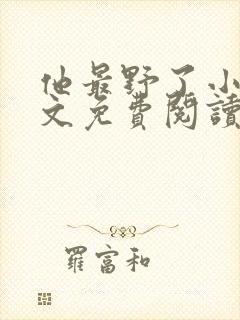 他最野了小
文免費閱讀
羅富和